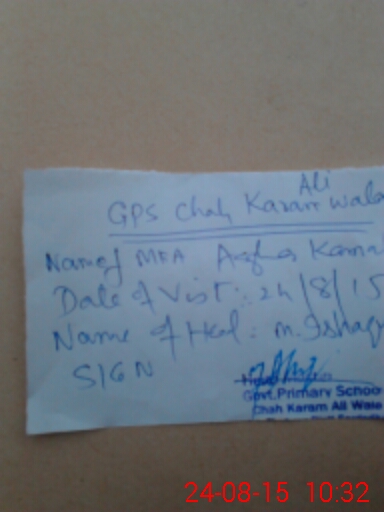 Ali
GPS Chah Karam Wala
Name of MEA Asghar Kama
Date of Visit: 24/8/15
Name of Head: M. Ishaq
SIGN
Govt. Primary Schoo
Chah Karam Ali Wala
24-08-15 10:32